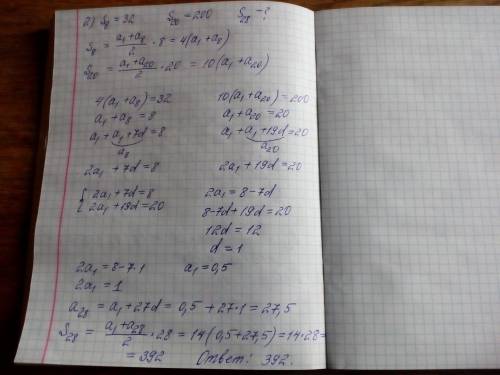 2) S₈ = 32 S₂₀ = 200 S₂₈ - ?
S₈ = (a₁ + a₈)/2 · 8 = 4(a₁ + a₈)
S₂₀ = (a₁ + a₂₀)/2 · 20 = 10(a₁ + a₂₀)
4(a₁ + a₈) = 32 10(a₁ + a₂₀) = 200
a₁ + a₈ = 8 a₁ + a₂₀ = 20
a₁ + a₁ + 7d = 8 a₁ + a₁ + 19d = 20
a₈ a₂₀
2a₁ + 7d = 8 2a₁ + 19d = 20
{ 2a₁ + 7d = 8 2a₁ = 8 - 7d
2a₁ + 19d = 20 8 - 7d + 19d = 20
12d = 12
d = 1
2a₁ = 8 - 7·1 a₁ = 0,5
2a₁ = 1
a₂₈ = a₁ + 27d = 0,5 + 27·1 = 27,5
S₂₈ = (a₁ + a₂₈)/2 · 28 = 14(0,5 + 27,5) = 14·28 =
= 392 Ответ: 392.